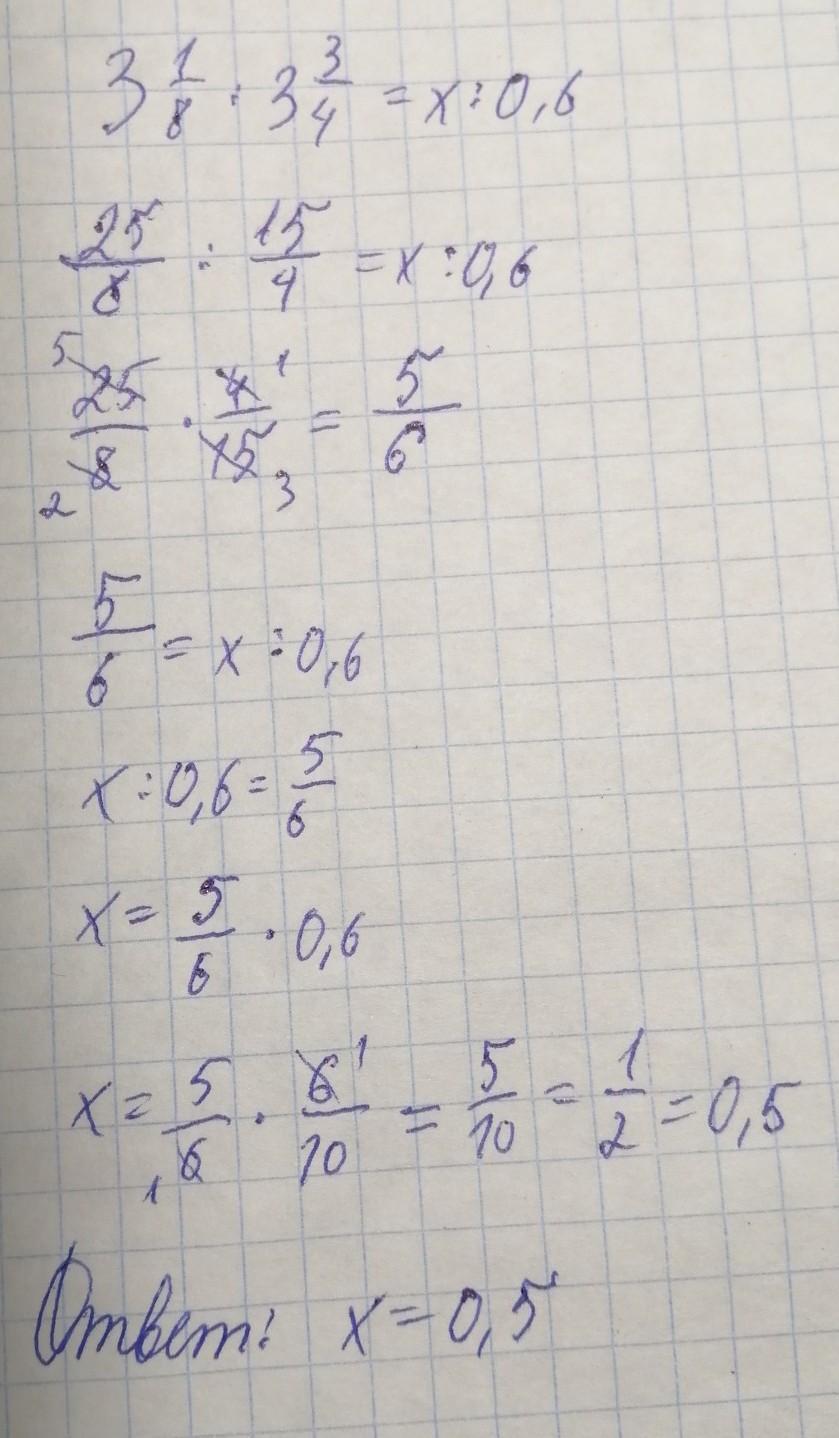 3 1/8 : 3 3/4 = x : 0,6
25/8 : 15/4 = x : 0,6
5 25/8 2 · 4/15 1 3 = 5/6
5/6 = x : 0,6
x : 0,6 = 5/6
x = 5/6 · 0,6
x = 5/6 1 · 6/10 1 = 5/10 = 1/2 = 0,5
Ответ: x = 0,5